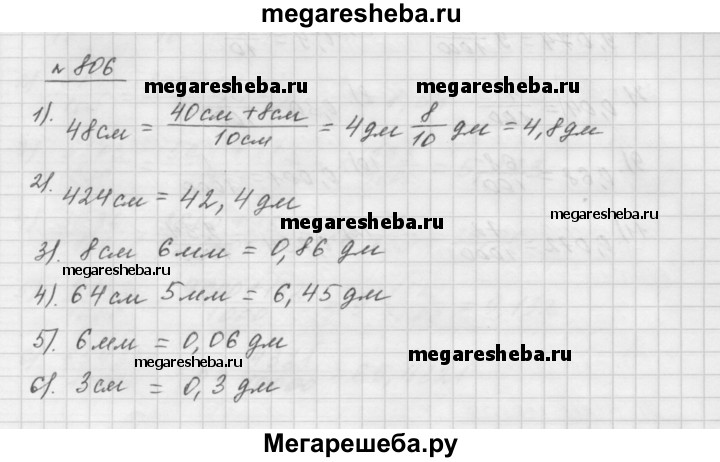 megaresheba.ru
№ 806
megaresheba.ru megaresheba.ru
1). 48см = (40см + 8см)/10см = 4дм 8/10 дм = 4,8дм
2). 424см = 42,4дм
megaresheba.ru
megaresheba.ru
3). 8см 6мм = 0,86 дм
megaresheba.ru
4). 64см 5мм = 6,45дм
5). 6мм = 0,06 дм
megaresheba.ru
megaresheba.ru
6). 3см = 0,3 дм
Мегарешеба.ру